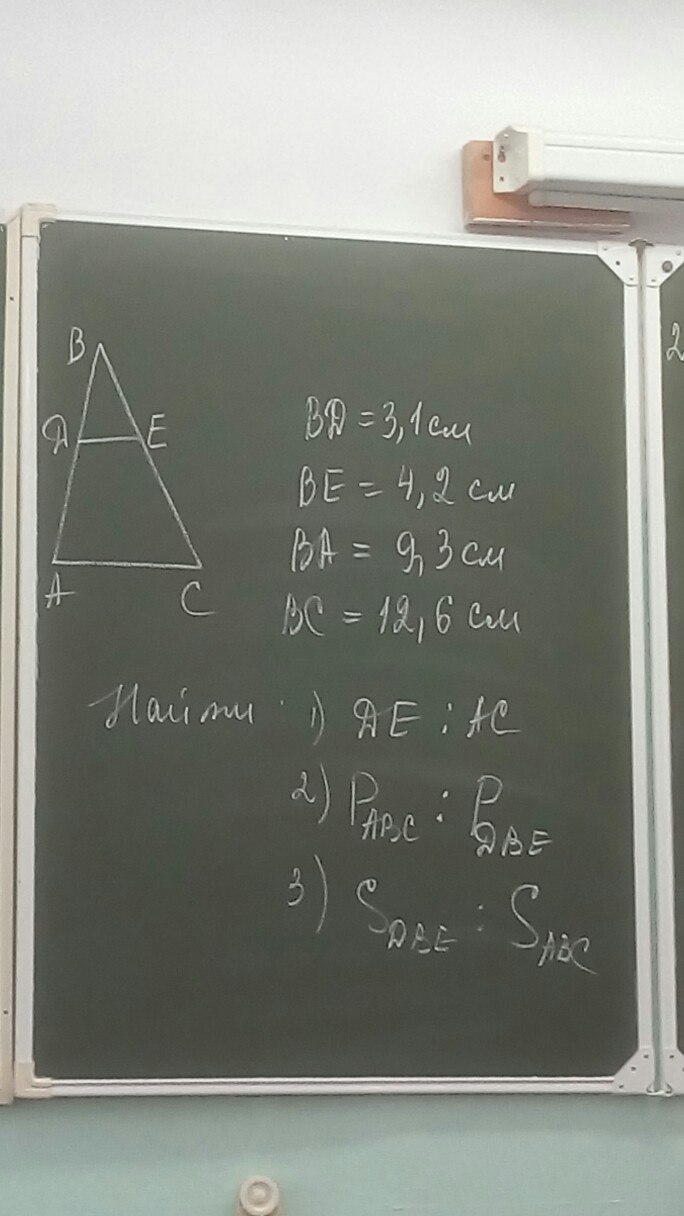 B
D E
A C
BD = 3,1 см
BE = 4,2 см
BA = 9,3 см
BC = 12,6 см
Найти: 1) DE : AC
2) P_ABC : P_DBE
3) S_DBE : S_ABC
2